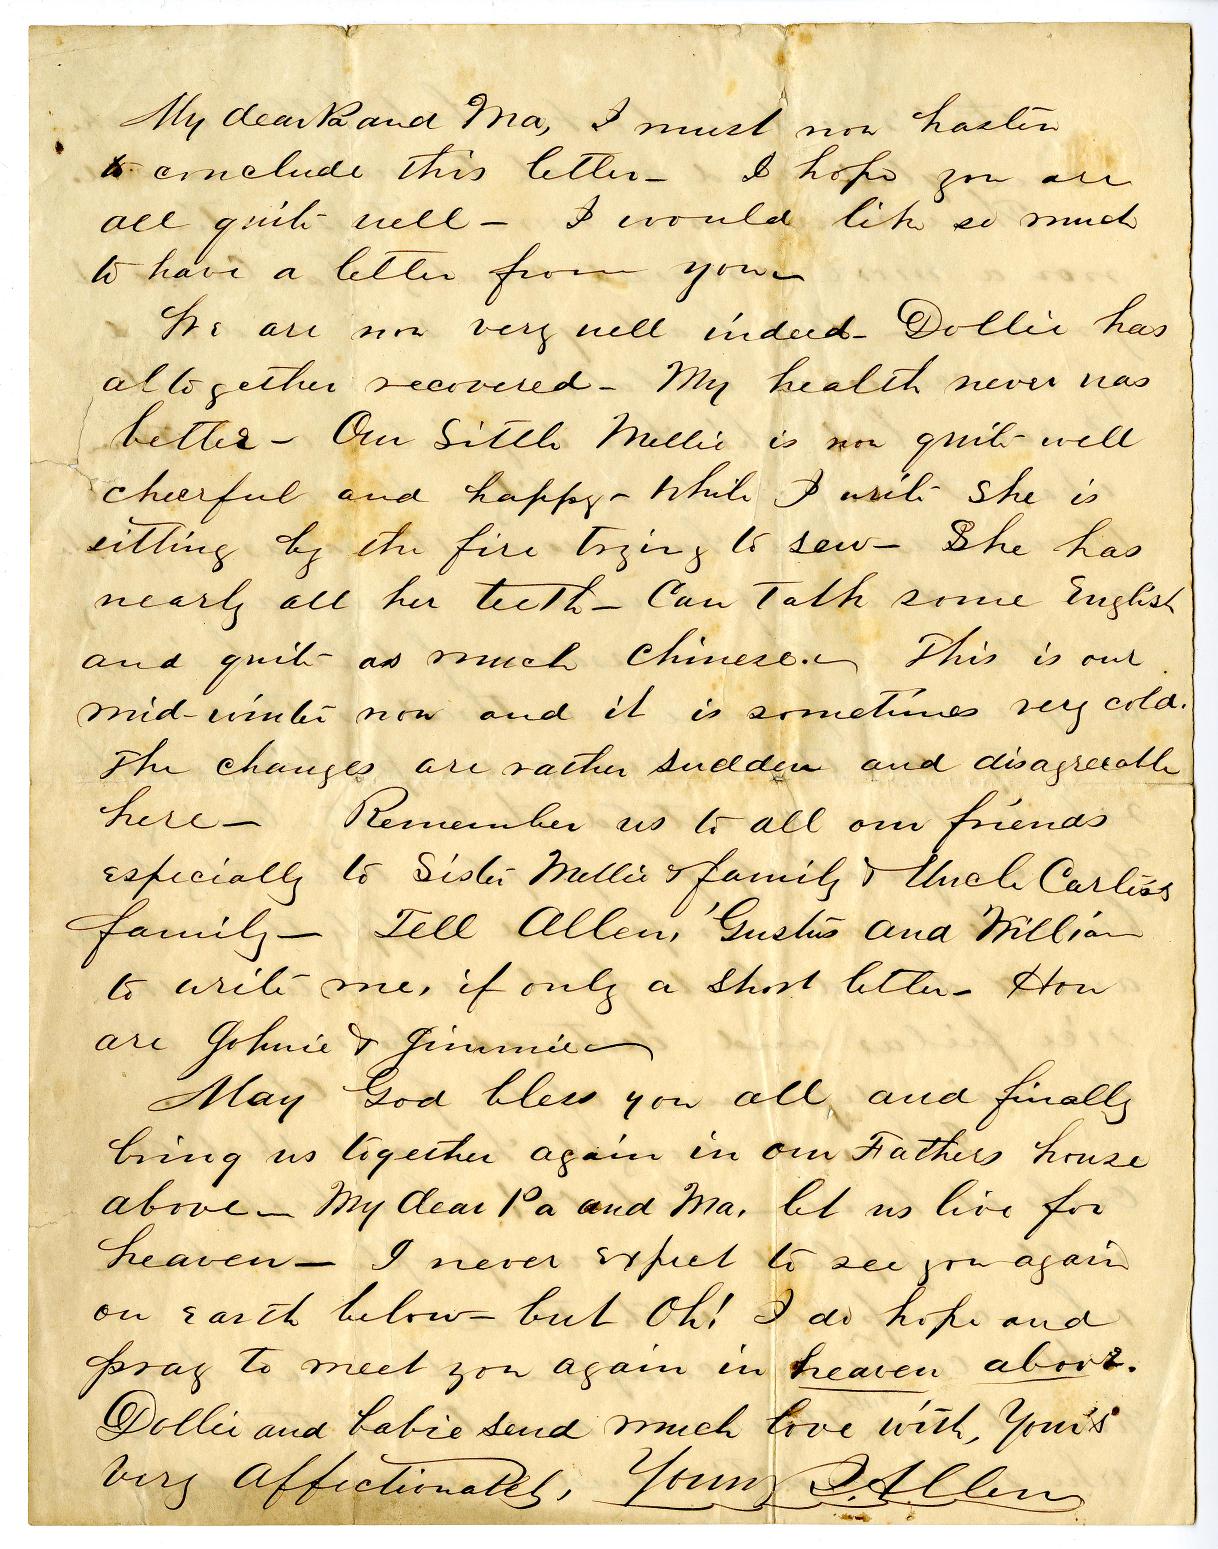 My dear Pa and Ma, I must now hasten
to conclude this letter — I hope you are
all quite well — I would like so much
to have a letter from you —
We are now very well indeed — Dollie has
altogether recovered — My health never was
better — Our Little Mellie is now quite well
cheerful and happy — While I write she is
sitting by the fire trying to sew — She has
nearly all her teeth — Can Talk some English
and quite as much Chinese. — This is our
mid-winter now and it is sometimes very cold.
The changes are rather sudden and disagreeable
here — Remember us to all our friends
especially to Sister Mellie & family & Uncle Carliss
family — Tell Allen, 'Gustus and William
to write me, if only a short letter — How
are Johnie & Jimmie —
May God bless you all and finally
bring us together again in our Fathers house
above — My dear Pa and Ma, let us live for
heaven — I never expect to see you again
on earth below — but Oh! I do hope and
pray to meet you again in heaven above.
Dollie and babie send much love with, Your's
very affectionately, Young J. Allen